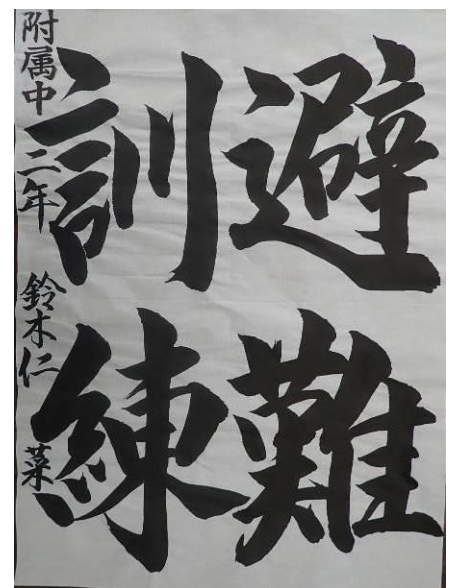 避難
訓練
附属中 二年 鈴木仁菜